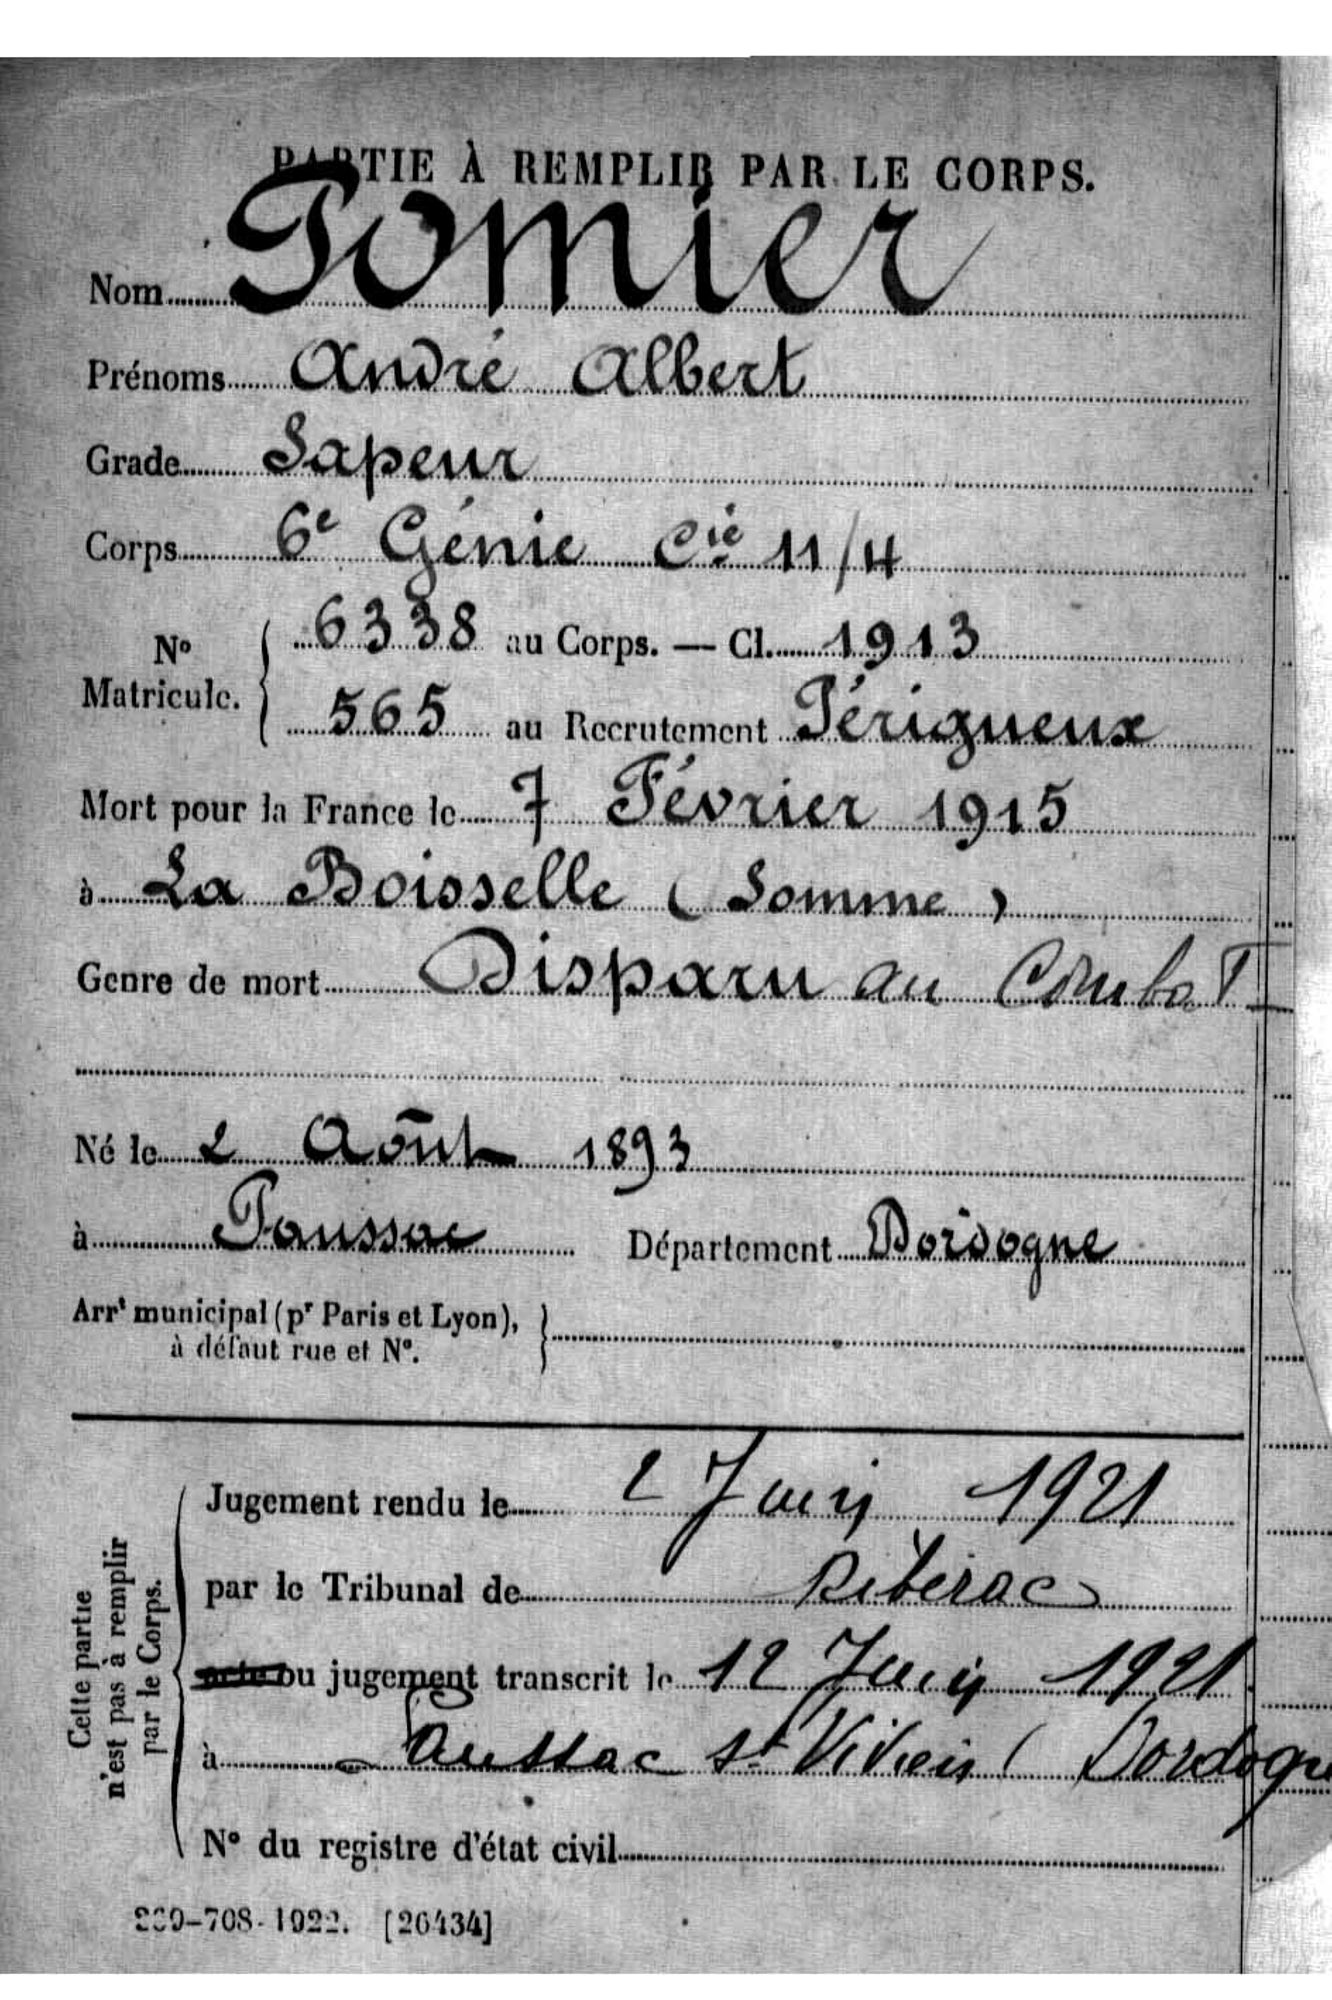 PARTIE À REMPLIR PAR LE CORPS.
Nom Pomier
Prénoms André Albert
Grade Sapeur
Corps 6e Génie Cie 11/4
No Matricule. 6338 au Corps. — Cl. 1913
565 au Recrutement Périgueux
Mort pour la France le 7 Février 1915
à La Boisselle (Somme)
Genre de mort Disparu au Combat
Né le 2 Août 1893
à Paussac Département Dordogne
Arrt municipal (pr Paris et Lyon),
à défaut rue et No.
Cette partie
n'est pas à remplir
par le Corps.
Jugement rendu le 2 Juin 1921
par le Tribunal de Ribérac
acte ou jugement transcrit le 12 Juin 1921
à Paussac St Vivien (Dordogne
No du registre d'état civil
-708-1922. [26434]